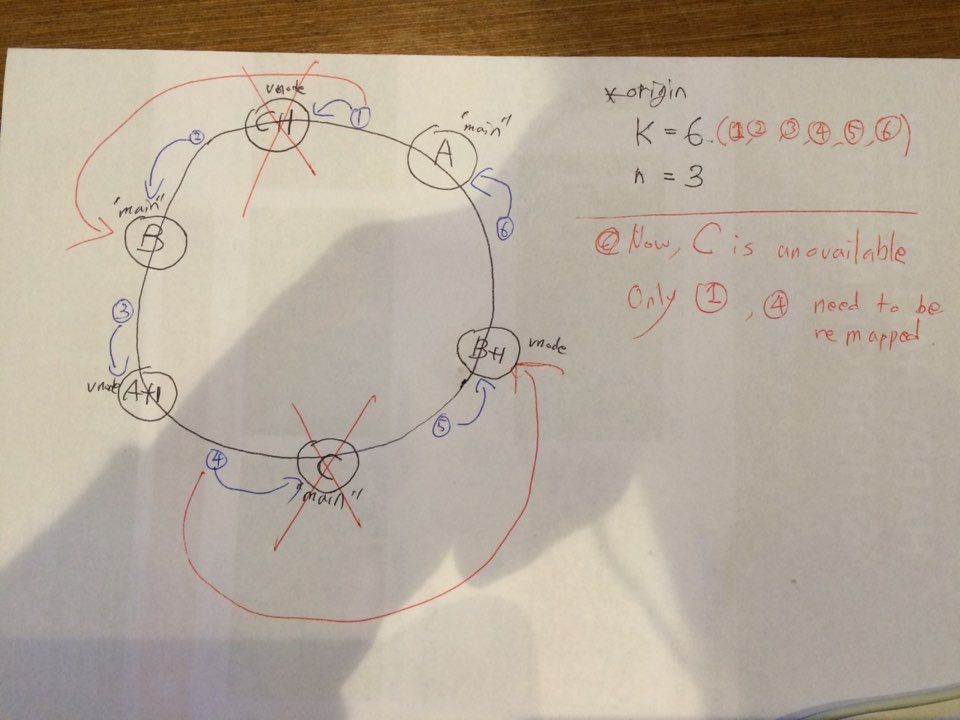 vnode
C+1
①
"main"
A
②
"main"
B
⑥
③
B+1
vnode
vnode
A+1
⑤
④
C
"main"
* origin
K = 6 (①,②,③,④,⑤,⑥)
n = 3
Now, C is unavailable
Only ①, ④ need to be
remapped.